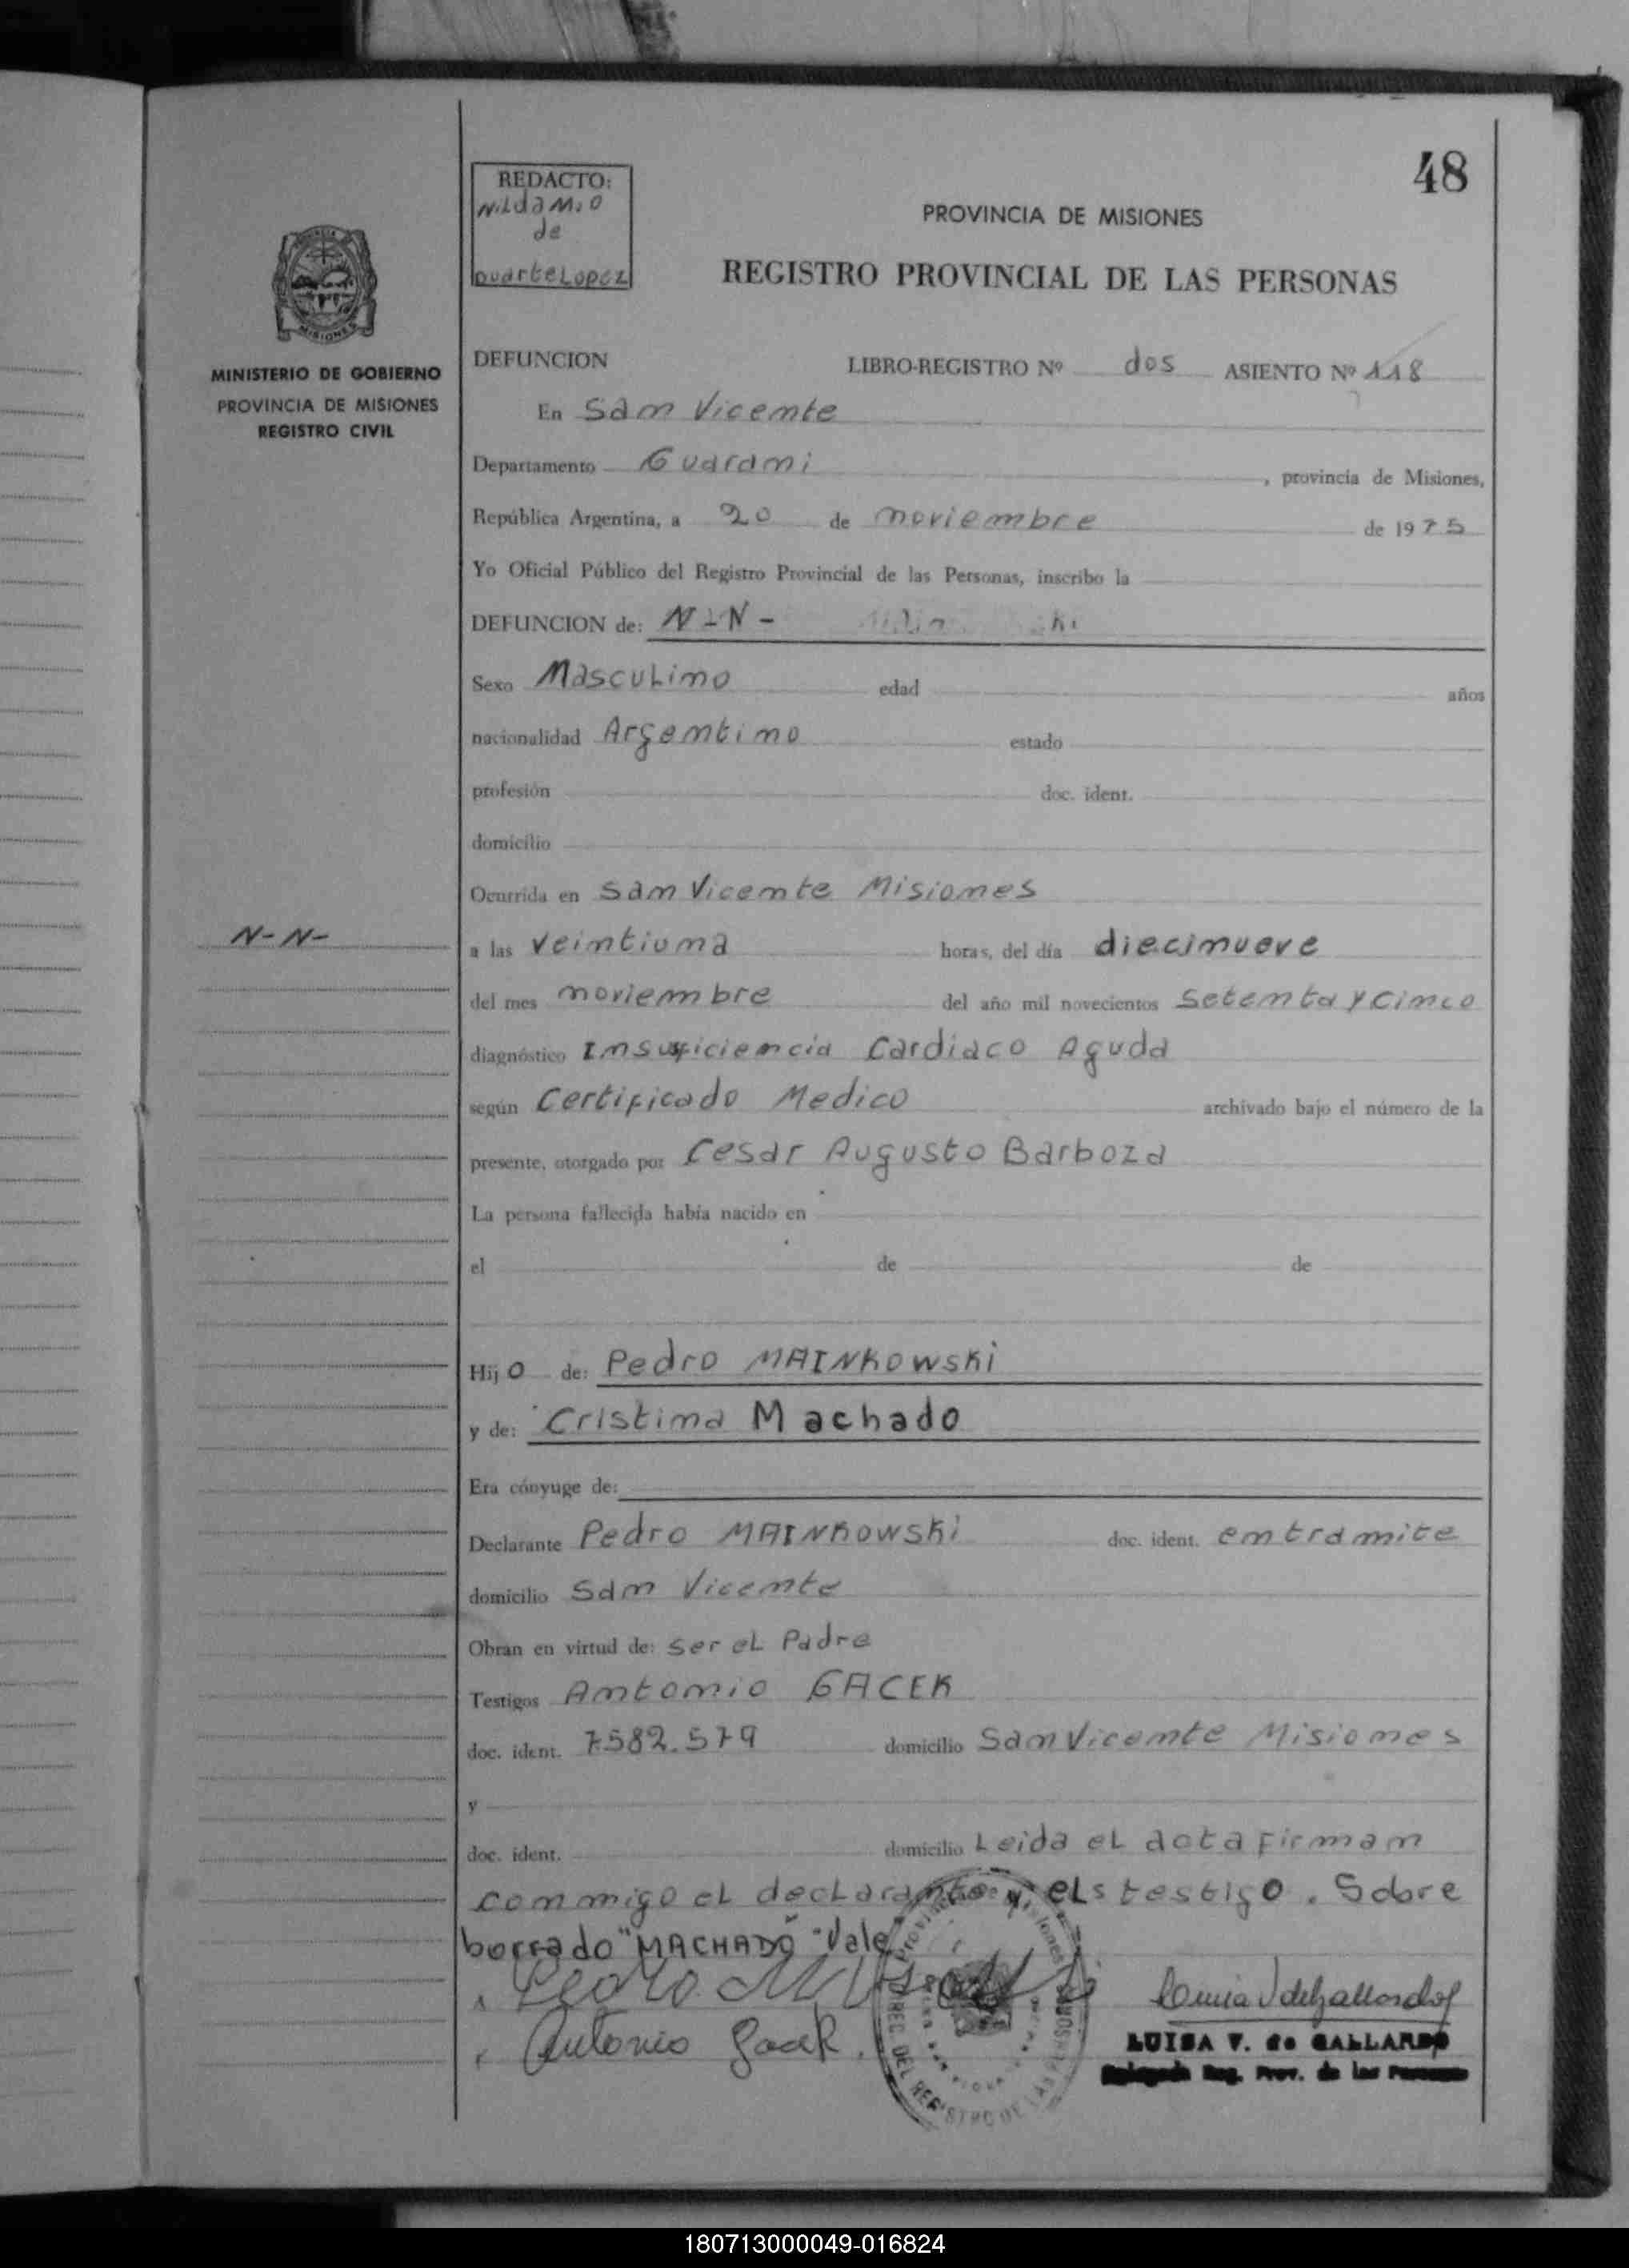 48
REDACTO:
NildaM.O
de
DuarteLopez
PROVINCIA DE MISIONES
REGISTRO PROVINCIAL DE LAS PERSONAS
MISIONES
MINISTERIO DE GOBIERNO
PROVINCIA DE MISIONES
REGISTRO CIVIL
DEFUNCION LIBRO-REGISTRO Nº dos ASIENTO Nº 118
En San Vicente
Departamento Guarani, provincia de Misiones,
República Argentina, a 20 de noviembre de 1975
Yo Oficial Público del Registro Provincial de las Personas, inscribo la
DEFUNCION de: N-N-
Sexo Masculino edad años
nacionalidad Argentino estado
profesión doc. ident.
domicilio
Ocurrida en San Vicente Misiones
N-N-
a las veintiuna horas, del día diecinueve
del mes noviembre del año mil novecientos setenta y cinco
diagnóstico Insuficiencia Cardiaco Aguda
según Certificado Medico archivado bajo el número de la
presente, otorgado por Cesar Augusto Barboza
La persona fallecida había nacido en
el de de
Hijo de: Pedro MAINKOWSKi
y de: Cristina Machado
Era cónyuge de:
Declarante Pedro MAINKOWSKi doc. ident. en tramite
domicilio San Vicente
Obran en virtud de: ser el Padre
Testigos Antonio GACEK
doc. ident. 7582.579 domicilio San Vicente Misiones
y
doc. ident. domicilio Leida el acta firman
conmigo el declarante y els testigo. Sobre
borrado "MACHADO" Vale
Pedro
Antonio Gacek.
LUISA V. de GALLARDO
Delegada Reg. Prov. de las Personas
180713000049-016824